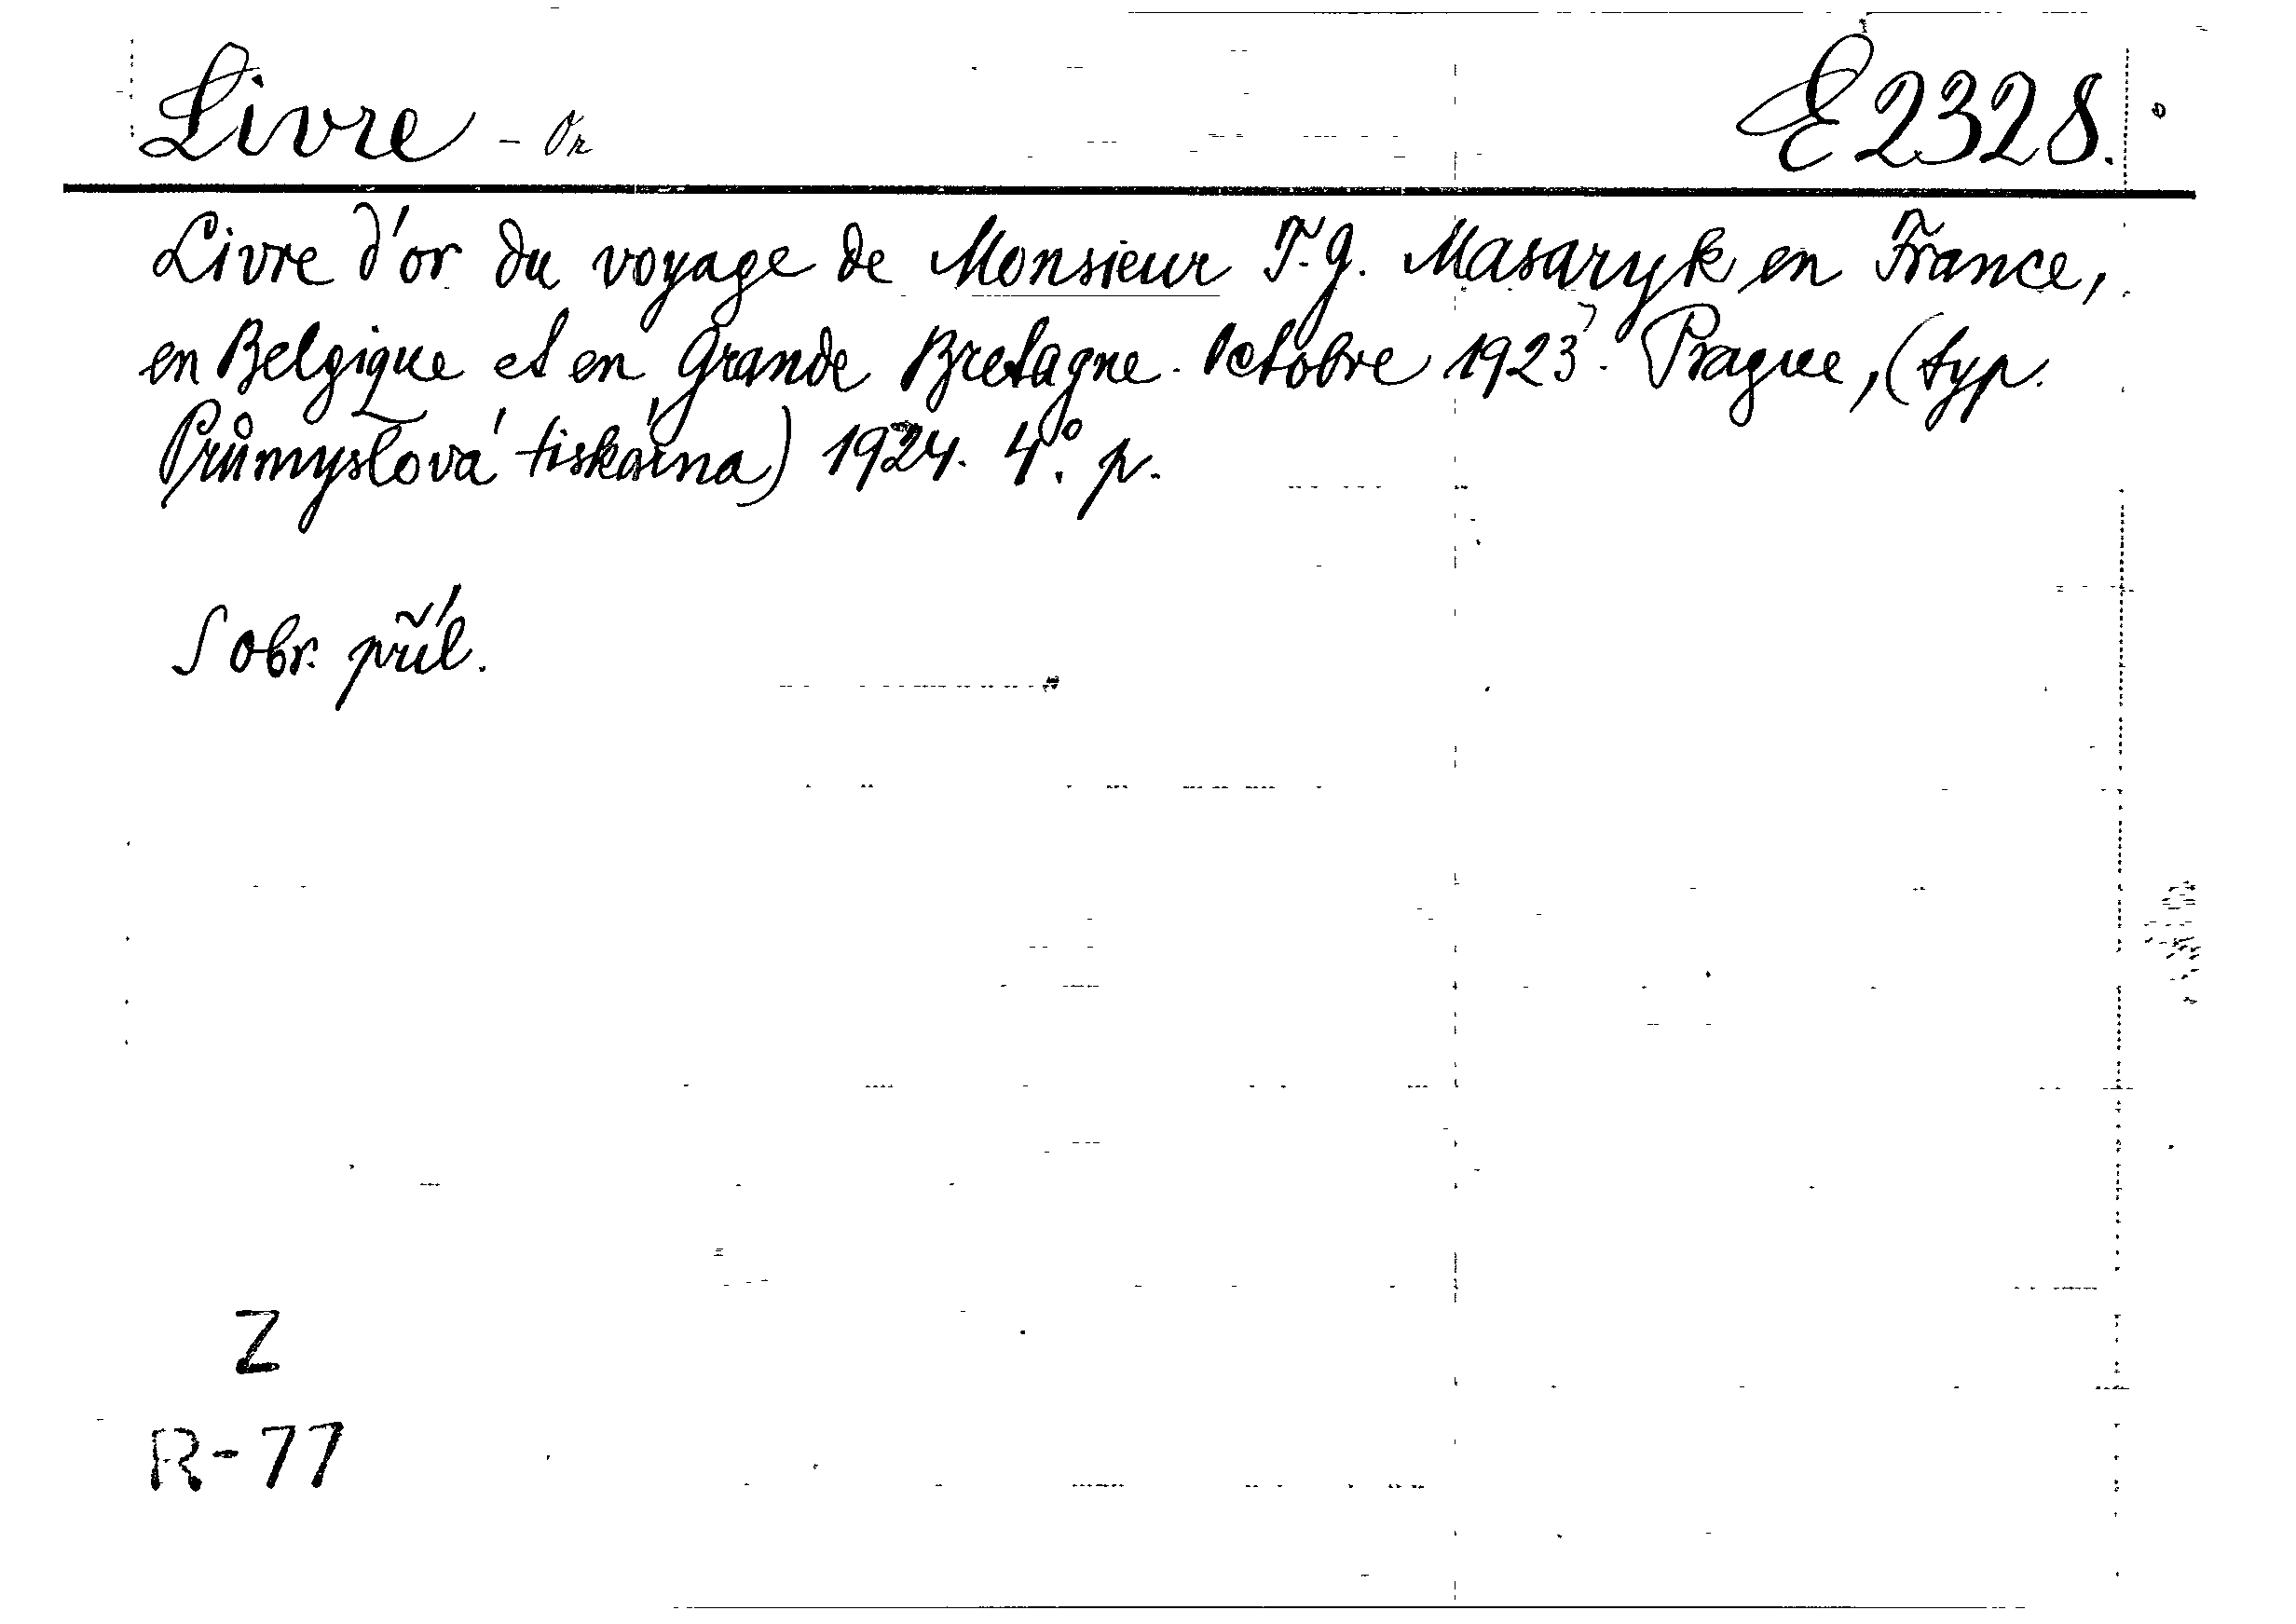 Livre - Or
E 2328.
Livre d'or du voyage de Monsieur T. G. Masaryk en France,
en Belgique et en Grande Bretagne. Octobre 1923. Prague, (typ.
Průmyslová tiskárna) 1924. 4°. p.
S obr. příl.
Z
R-77